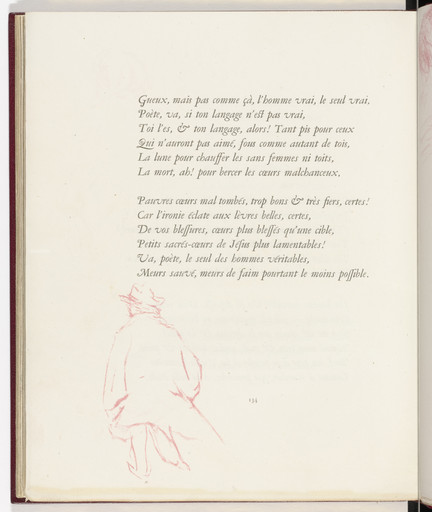 Gueux, mais pas comme çà, l'homme vrai, le seul vrai.
Poète, va, si ton langage n'est pas vrai,
Toi l'es, & ton langage, alors! Tant pis pour ceux
Qui n'auront pas aimé, fous comme autant de tois,
La lune pour chauffer les sans femmes ni toits,
La mort, ah! pour bercer les cœurs malchanceux,
Pauvres cœurs mal tombés, trop bons & très fiers, certes!
Car l'ironie éclate aux lèvres belles, certes,
De vos blessures, cœurs plus blessés qu'une cible,
Petits sacrés-cœurs de Jésus plus lamentables!
Va, poète, le seul des hommes véritables,
Meurs sauvé, meurs de faim pourtant le moins possible.